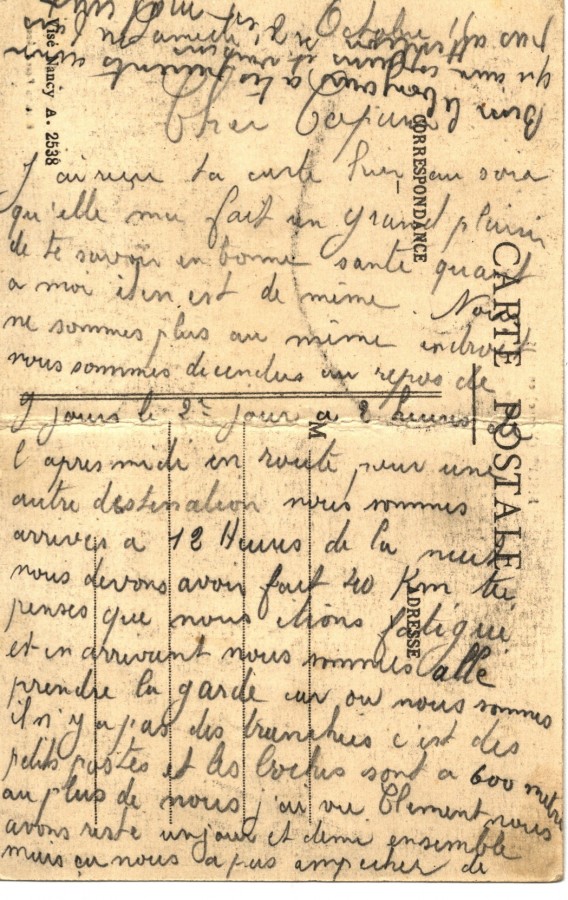 Cher Copain
J'ai reçu ta carte hier au soir
qu'elle ma fait un grand plaisir
de te savoir en bonne santé quant
a moi il en est de même. Nous
ne sommes plus au même endroit
nous sommes décendus au repos de
9 jours le 2e jour a 2 heures de
l'apres midi en route pour une
autre destination nous sommes
arrivés a 12 Heures de la nuit
nous devons avoir fait 40 Km tu
penses que nous étions fatigué
et en arrivant nous sommes allé
prendre la garde car ou nous sommes
il n'y a pas des tranchées c'est des
petits postes et les boches sont a 600 metre
au plus de nous j'ai vu Clement nous
avons resté un jour et demi ensemble
mais ça nous a pas empecher de
Octobre
CARTE POSTALE
CORRESPONDANCE
ADRESSE
M
Visé Nancy A. 2538